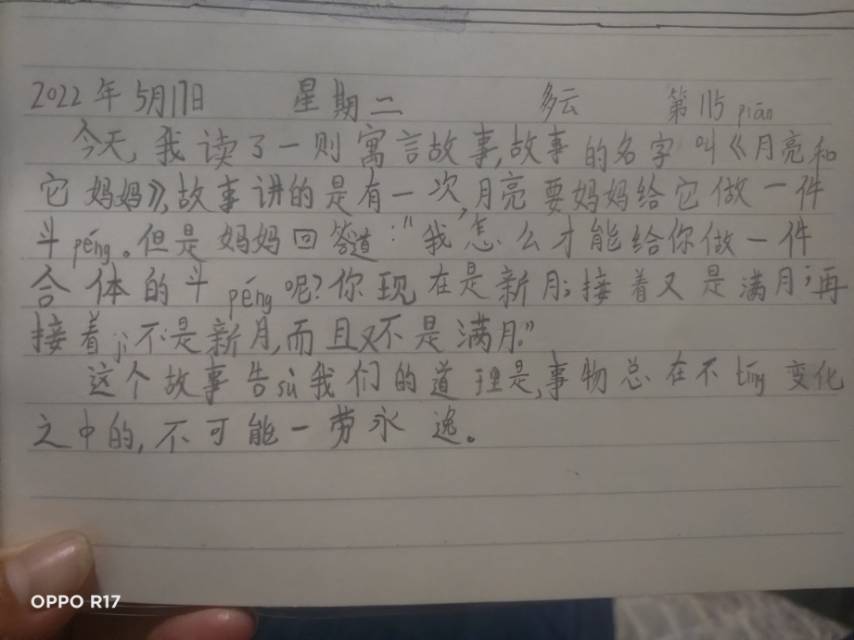 2022年5月17日 星期二 多云 第115 piān
今天,我读了一则寓言故事,故事的名字叫《月亮和
它妈妈》,故事讲的是有一次,月亮要妈妈给它做一件
斗péng。但是妈妈回答道:"我怎么才能给你做一件
合体的斗péng呢?你现在是新月;接着又是满月;再
接着,jì不是新月,而且又不是满月。"
这个故事告sù我们的道理是,事物总在不tíng变化
之中的,不可能一劳永逸。
OPPO R17